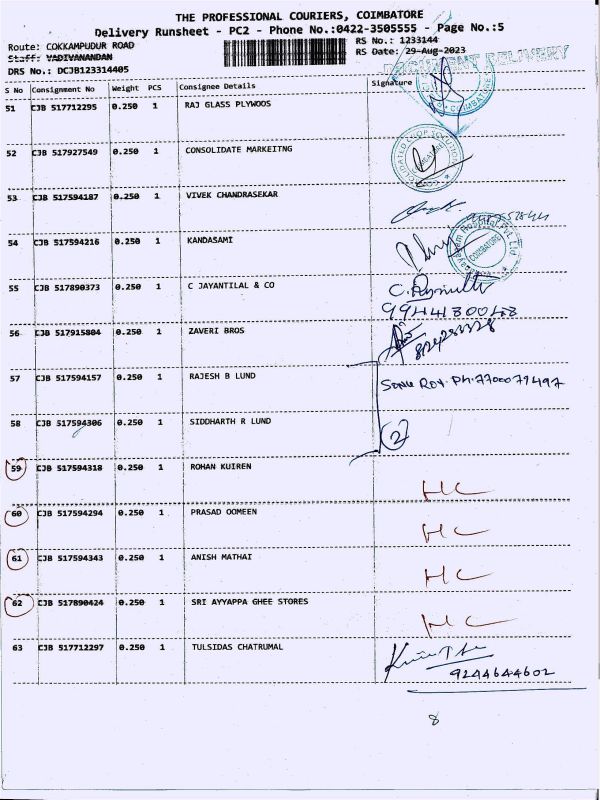 THE PROFESSIONAL COURIERS, COIMBATORE
Delivery Runsheet - PC2 - Phone No.:0422-3505555 - Page No.:5
Route: COKKAMPUDUR ROAD RS No.: 1233144
Staff: VADIVANANDAN RS Date: 29-Aug-2023
DRS No.: DCJB123314405
DOCUMENT DELIVERY
S No Consignment No Weight PCS Consignee Details Signature
51 CJB 517712295 0.250 1 RAJ GLASS PLYWOOS
COIMBATORE
52 CJB 517927549 0.250 1 CONSOLIDATE MARKEITNG
53 CJB 517594187 0.250 1 VIVEK CHANDRASEKAR
54 CJB 517594216 0.250 1 KANDASAMI
Hospital Pvt. Ltd
COIMBATORE
55 CJB 517890373 0.250 1 C JAYANTILAL & CO
9944130048
56 CJB 517915804 0.250 1 ZAVERI BROS
57 CJB 517594157 0.250 1 RAJESH B LUND
SONU ROY. Ph: 7700071497
58 CJB 517594306 0.250 1 SIDDHARTH R LUND
2
59 CJB 517594318 0.250 1 ROHAN KUIREN
HC
60 CJB 517594294 0.250 1 PRASAD OOMEEN
HC
61 CJB 517594343 0.250 1 ANISH MATHAI
HC
62 CJB 517890424 0.250 1 SRI AYYAPPA GHEE STORES
HC
63 CJB 517712297 0.250 1 TULSIDAS CHATRUMAL
9244644602
8